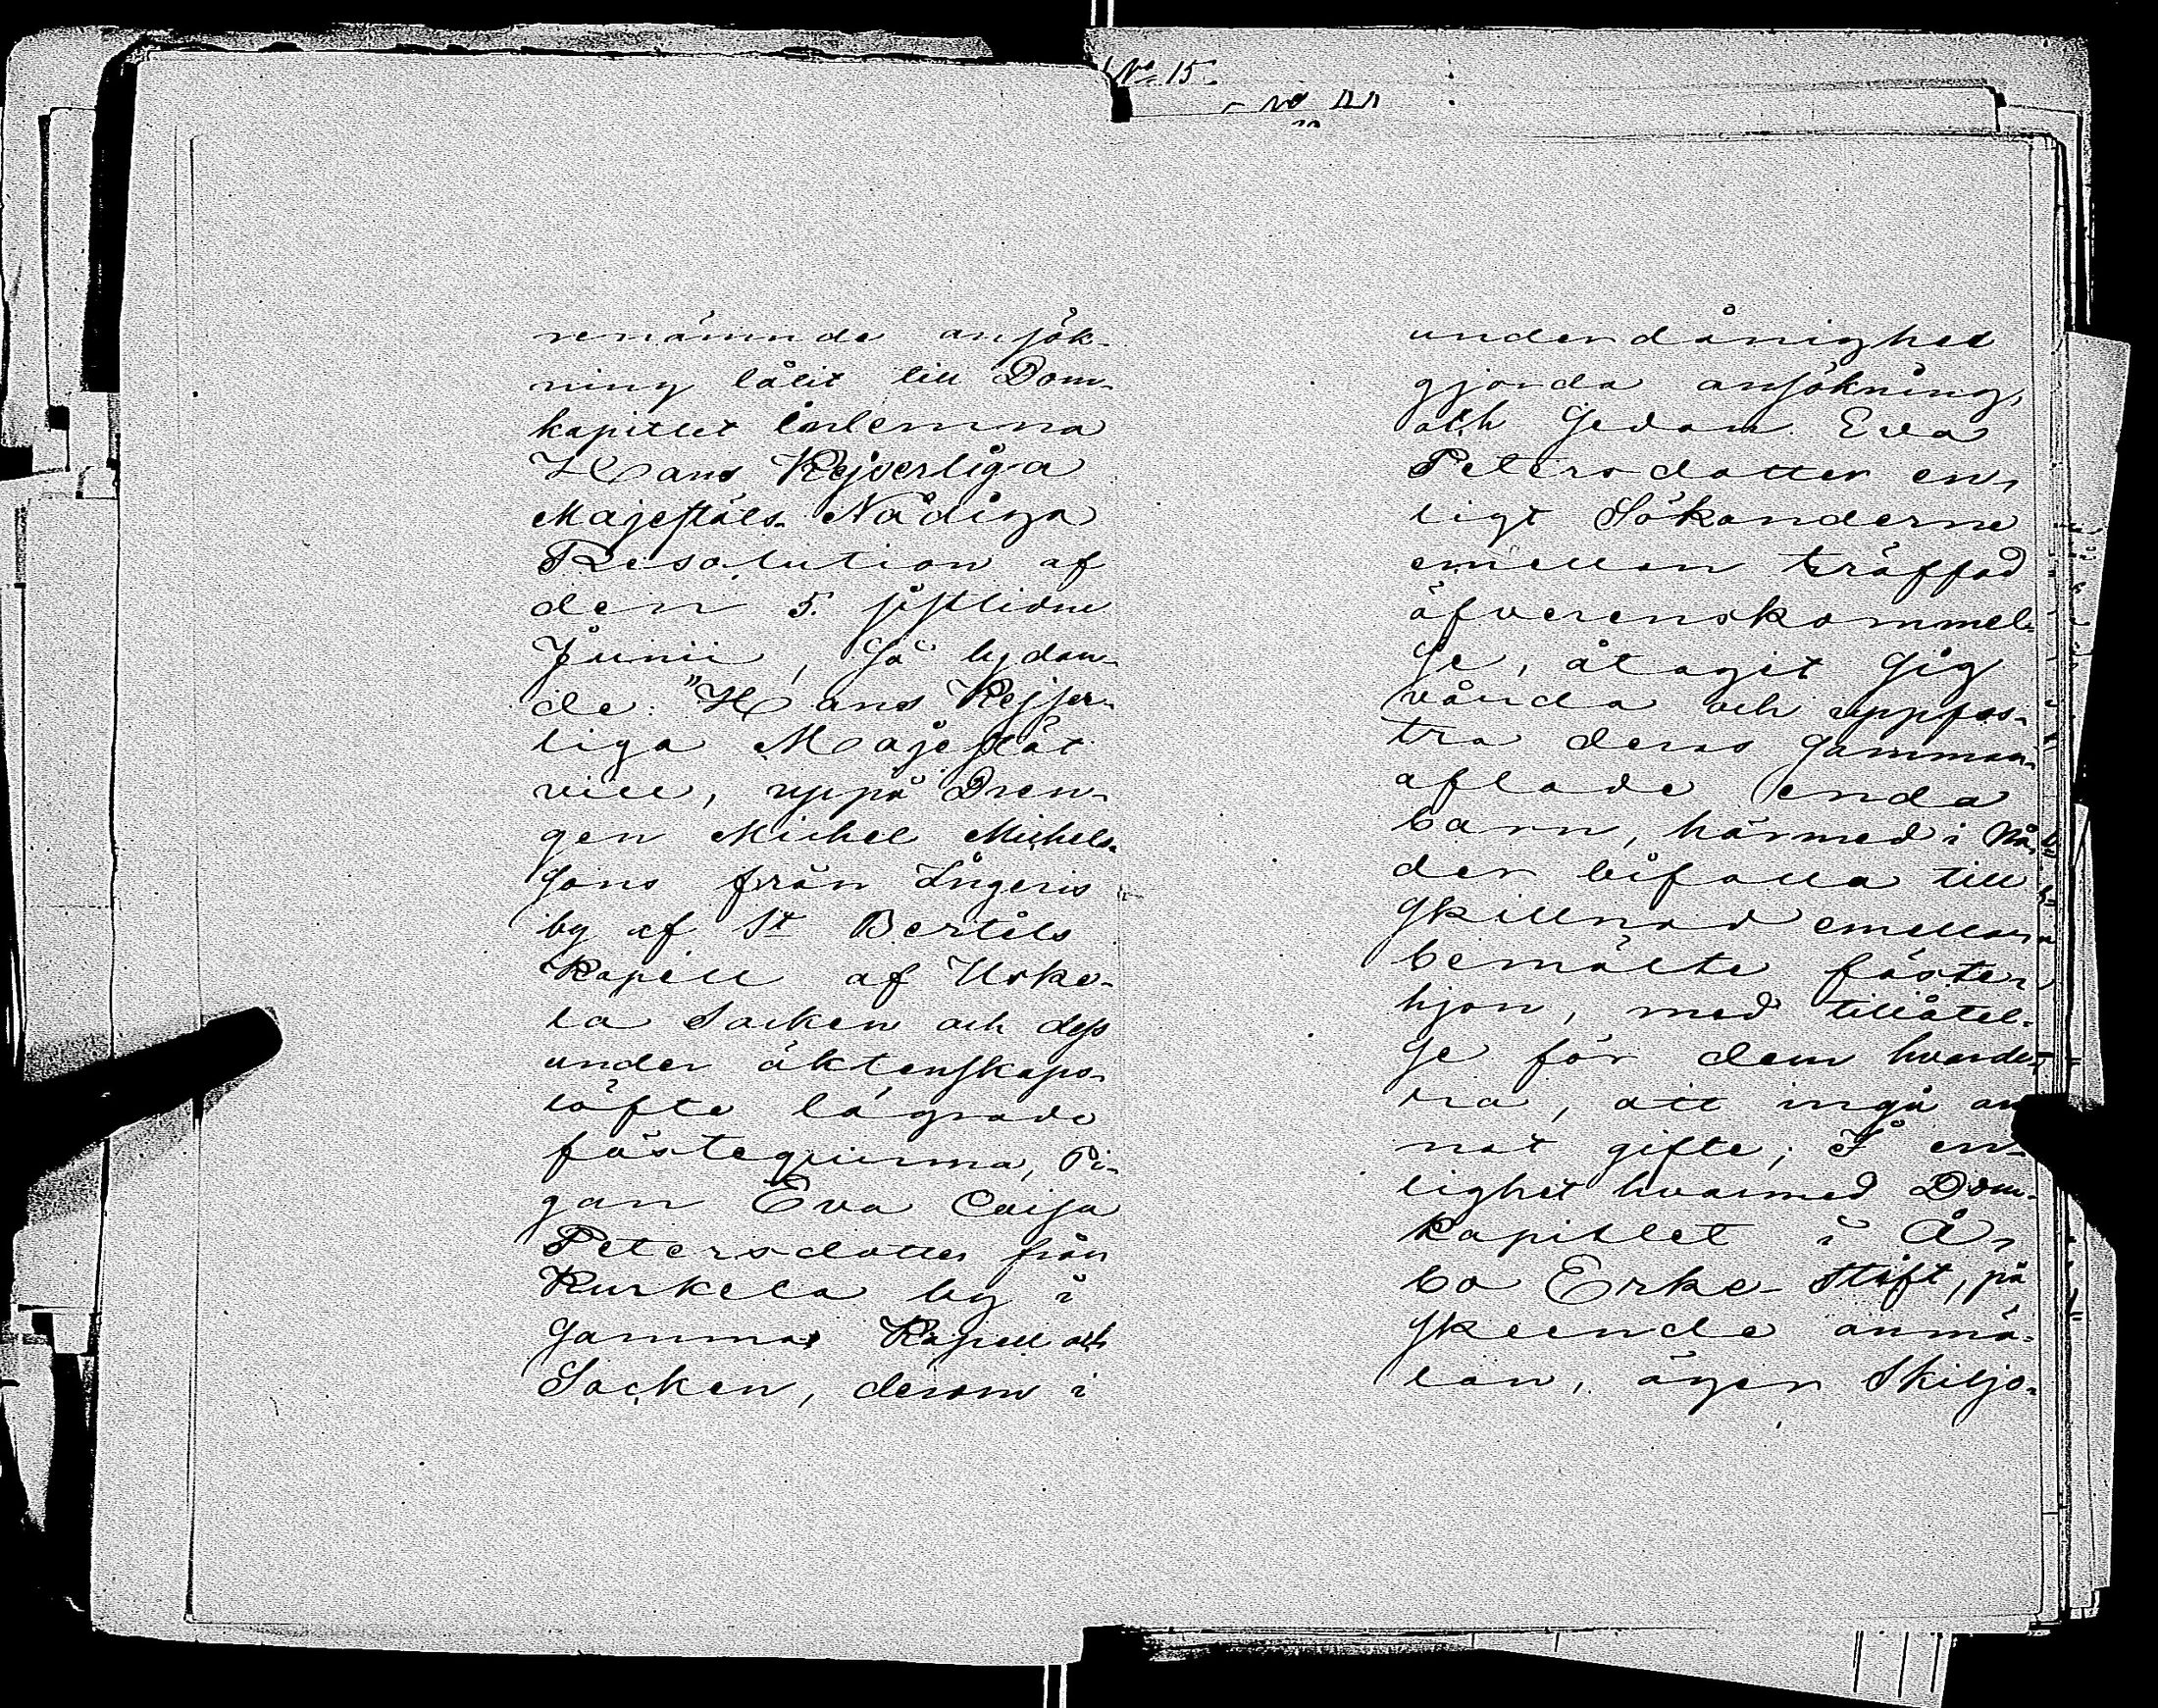 No 15.
renämnde ansök-
ning låtit till Dom-
kapitlet inlemna
Hans Kejserliga
Majestäts Nådiga
Resolution af
den 5. sistlidne
Junii, så lydan-
de: "Hans Kejser-
liga Majestät
vill, uppå Dren-
gen Michel Michels-
sons från Ingeris
by af St Bertils
Kapell af Uske-
la Socken och dess
under äktenskaps-
löfte lägrade
fästeqvinna, Pi-
gan Eva Caisa
Petersdotter från
Kurkela by i
samma Kapell och
Socken, derom i
underdånighet
gjorda ansökning,
och sedan Eva
Petersdotter en-
ligt Sökanderne
emellan träffad
öfverenskommel-
se, åtagit sig
vårda och uppfos-
tra deras samman-
aflade enda
barn, härmed i Nå-
der bifalla till
skillnad emellan
bemälte fäste-
hjon, med tillåtel-
se för dem hvarde-
ra, att ingå an
nat gifte; I en-
lighet hvarmed Dom-
kapitlet i Å-
bo Erke-Stift, på
skeende anmä-
lan, äger Skiljo-